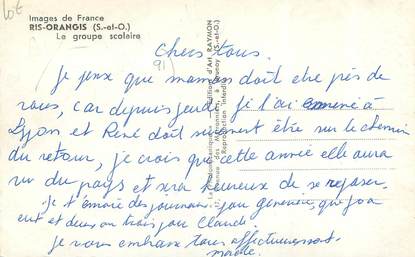 lot
Images de France
RIS-ORANGIS (S.-et-O.)
Le groupe scolaire
91)
Chers tous.
Je pense que maman doit être près de
vous, car depuis jeudi je l'ai emmené à
Lyon et René doit surement être sur le chemin
du retour, je crois que cette année elle aura
vu du pays et sera heureuse de se reposer.
Je t'envoie des journaux
et deux ou trois pour Claude.
je vous embrasse tous affectueusement.